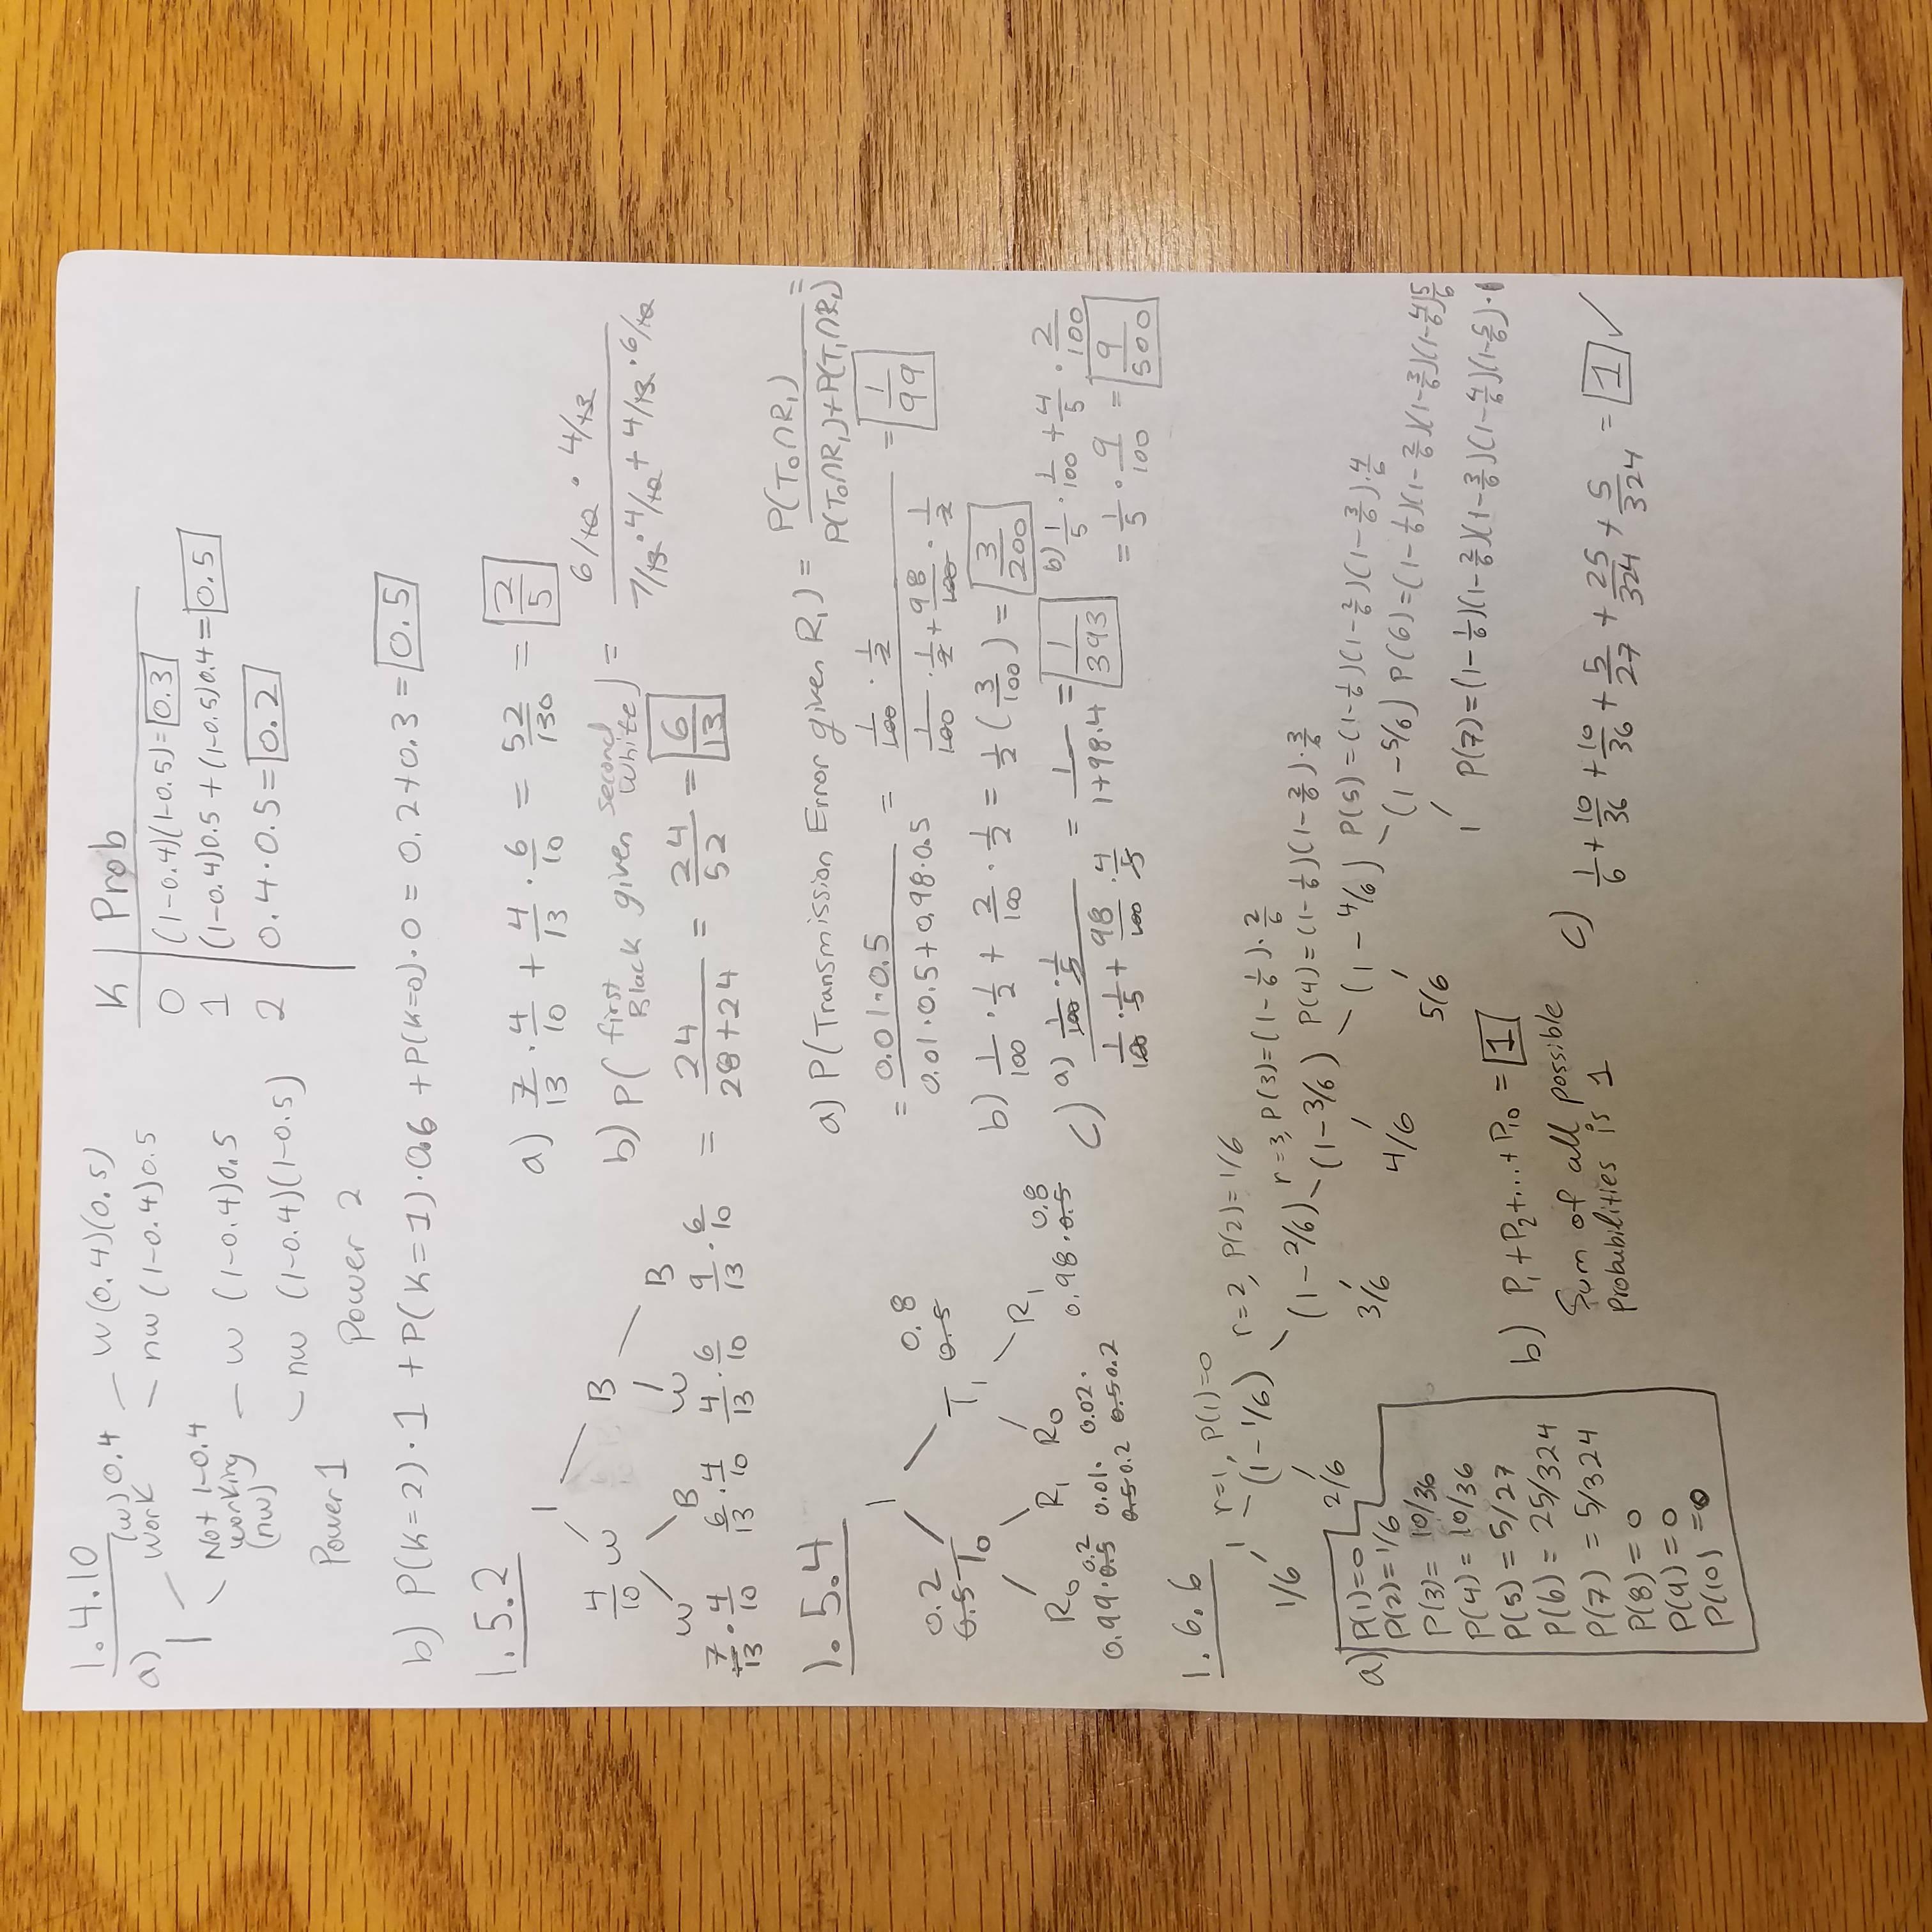 1.4.10
a) | (w) 0.4 Work — w (0.4)(0.5)
– nw (1-0.4)0.5
Not 1-0.4 working (nw) — w (1-0.4)0.5
– nw (1-0.4)(1-0.5)
Power 1 Power 2
K | Prob
0 (1-0.4)(1-0.5)= 0.3
1 (1-0.4)0.5 + (1-0.5)0.4 = 0.5
2 0.4·0.5 = 0.2
b) P(K=2)·1 + P(K=1)·0.6 + P(K=0)·0 = 0.2+0.3 = 0.5
1.5.2
1
4/10 W B
W B W B
7/13 · 4/10 6/13 · 4/10 4/13 · 6/10 9/13 · 6/10
a) 7/13 · 4/10 + 4/13 · 6/10 = 52/130 = 2/5
b) P( first Black given second white ) = (6/10 · 4/13) / (7/13 · 4/10 + 4/13 · 6/10)
= 24/(28+24) = 24/52 = 6/13
1.5.4
1
0.2 0.5 T₀ T₁ 0.8 0.5
R₀ R₁ R₀ R₁
0.99·0.5 0.2 0.01·0.5 0.2 0.02·0.5 0.2 0.98·0.5 0.8
a) P(Transmission Error given R₁) = P(T₀∩R₁) / (P(T₀∩R₁)+P(T₁∩R₁)) =
= 0.01·0.5 / (0.01·0.5+0.98·0.5) = (1/100 · 1/2) / (1/100 · 1/2 + 98/100 · 1/2) = 1/99
b) 1/100 · 1/2 + 2/100 · 1/2 = 1/2 (3/100) = 3/200
c) a) (1/100 · 1/5) / (1/100 · 1/5 + 98/100 · 4/5) = 1/(1+98·4) = 1/393
b) 1/5 · 1/100 + 4/5 · 2/100
= 1/5 · 9/100 = 9/500
1.6.6
1 r=1, P(1)=0
1/6 (1-1/6) r=2, P(2)=1/6
2/6 (1-2/6) r=3, P(3)=(1-1/6)·2/6
3/6 (1-3/6) P(4)=(1-1/6)(1-2/6)·3/6
4/6 (1-4/6) P(5)=(1-1/6)(1-2/6)(1-3/6)·4/6
5/6 (1-5/6) P(6)=(1-1/6)(1-2/6)(1-3/6)(1-4/6)5/6
1 P(7)=(1-1/6)(1-2/6)(1-3/6)(1-4/6)(1-5/6)·1
a) P(1)=0
P(2)=1/6
P(3)= 10/36
P(4)= 10/36
P(5)= 5/27
P(6)= 25/324
P(7) = 5/324
P(8)= 0
P(9)=0
P(10) =0
b) P₁+P₂+...+P₁₀ = 1
Sum of all possible
probabilities is 1
c) 1/6 + 10/36 + 10/36 + 5/27 + 25/324 + 5/324 = 1 ✓